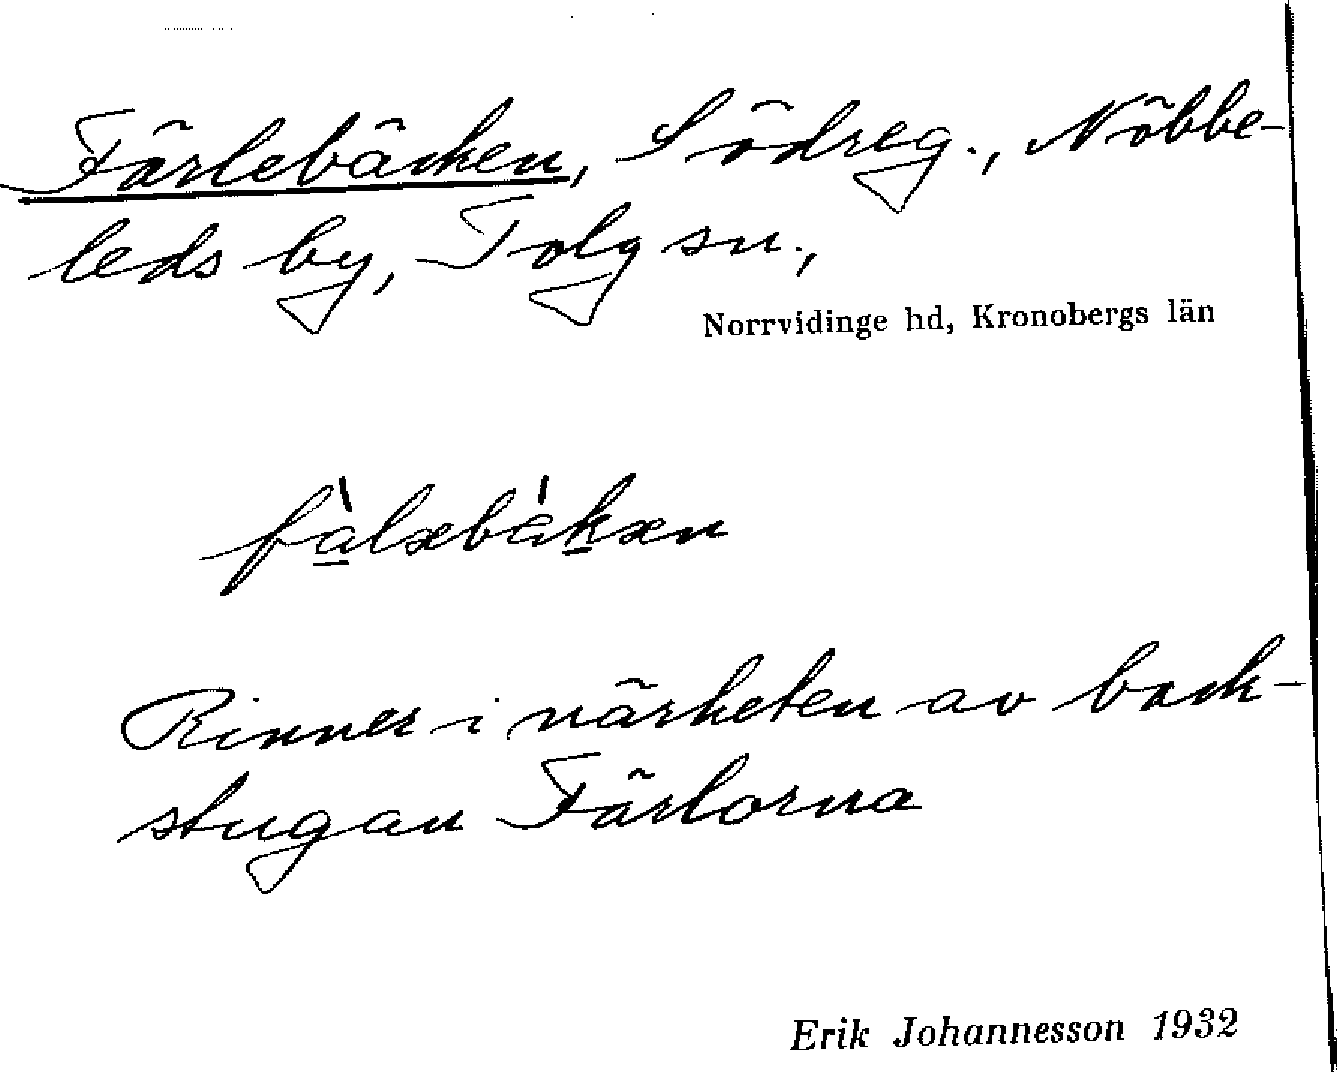 Färlebäcken, Södreg., Nöbbe-
leds by, Tolg sn.,
Norrvidinge hd, Kronobergs län
fàlxbákxn
Rinner i närheten av back-
stugan Färlorna
Erik Johannesson 1932